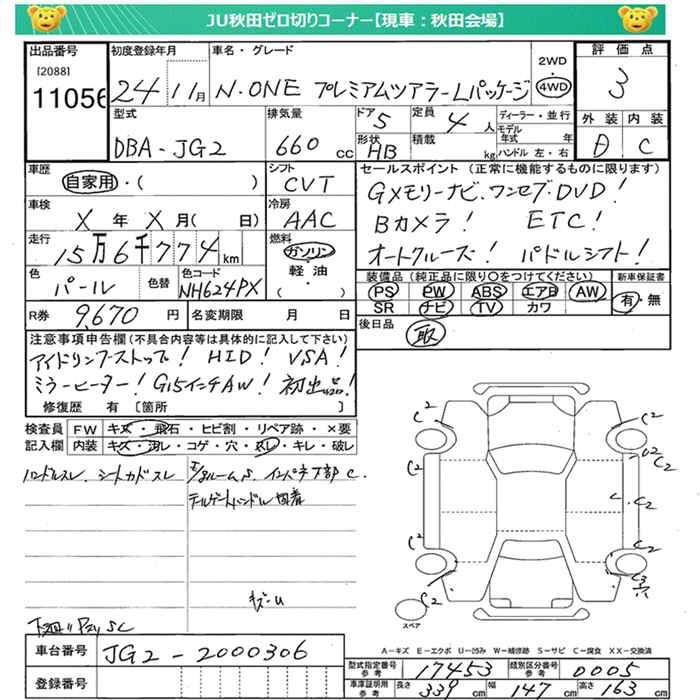 JU秋田ゼロ切りコーナー【現車:秋田会場】
出品番号 初度登録年月 車名・グレード 2WD 4WD 評価点
[2088]
11056 24 11月 N-ONE プレミアムツアラーLパッケージ 3
型式 排気量 ドア 定員 ディーラー・並行 外装 内装
DBA-JG2 660cc 5 4人 モデル年式 年
形状 HB 積載 kg ハンドル左・右 C
車歴 自家用・( ) シフト CVT
セールスポイント(正常に機能するものに限ります)
GXモリーナビ.ワンセグ.DVD!
車検 X年X月( 日) 冷房 AAC
Bカメラ! ETC!
走行 15万6千774km 燃料 ガソリン・軽油・( )
オートクルーズ! パドルシフト!
色 パール 色替 色コード NH624PX
装備品(純正品に限り○をつけてください) 新車保証書
PS PW ABS エアB AW 有・無
SR ナビ TV カワ
R券 9,670円 名変期限 月 日
後日品 取
注意事項申告欄(不具合内容等は具体的に記入して下さい)
アイドリングストップ! HID! VSA!
ミラーヒーター! G15インチAW! 初出品!
修復歴 有[箇所 ]
検査員 FW キズ・飛石・ヒビ割・リペア跡・×要
記入欄 内装 キズ・汚レ・コゲ・穴・スレ・キレ・破レ
ハンドルスレ、シートカドスレ
E/gルームS. インパネ下部C.
テールゲートハンドル固着
キズ・U
C2 C2
C2 U2 C2
C2 C2
C2 C2
C2
スペア
A-キズ E-エクボ U-凹み W-補修跡 S-サビ C-腐食 XX-交換済
車台番号 JG2-2000306
型式指定番号参考 17453 類別区分番号参考 0005
登録番号
車庫証明用参考 長さ 339cm 幅 147cm 高さ 163cm